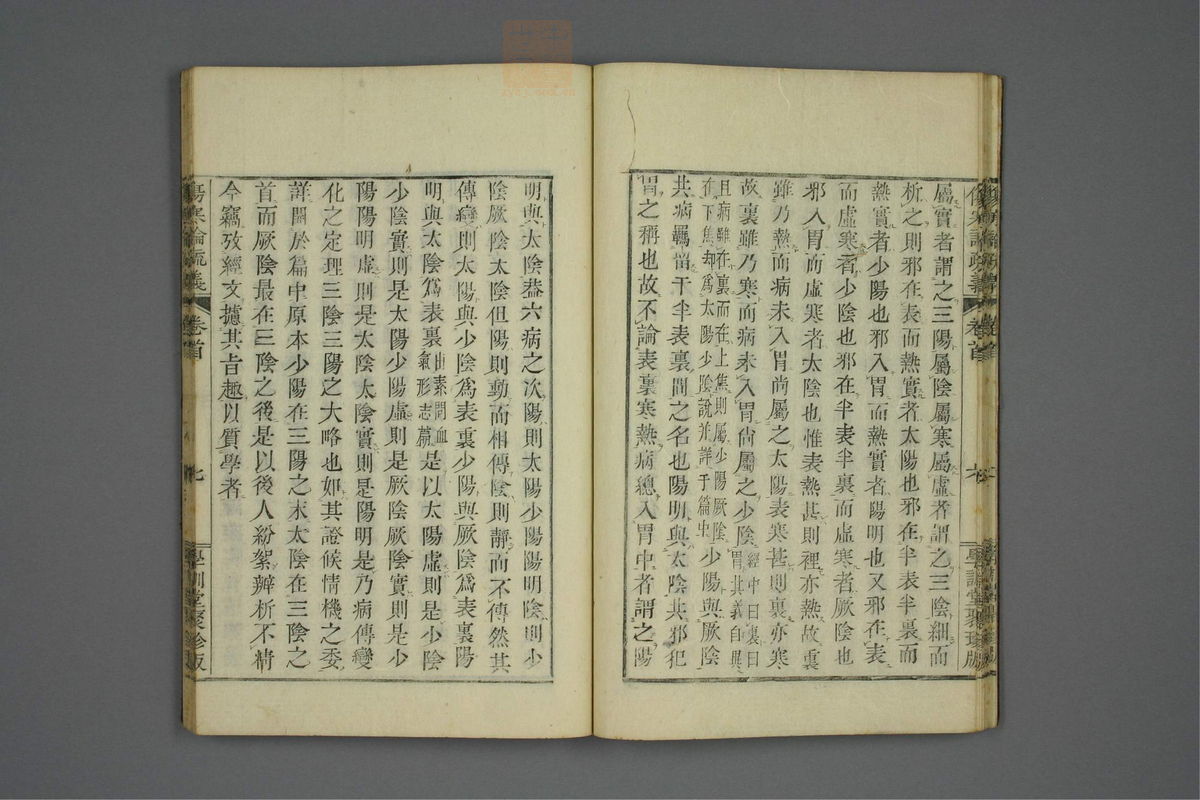 屬實者謂之三陽屬陰屬寒屬虛者謂之三陰細而
析之則邪在表而熱實者太陽也邪在半表半裏而
熱實者少陽也邪入胃而熱實者陽明也又邪在表
而虛寒者少陰也邪在半表半裏而虛寒者厥陰也
邪入胃而虛寒者太陰也惟表熱甚則裡亦熱故裏
雖乃熱而病未入胃尚屬之太陽表寒甚則裏亦寒
故裏雖乃寒而病未入胃尚屬之少陰
經中曰裏曰
胃其義自異
且病雖在裏而在上焦則屬少陽厥陰
在下焦却爲太陽少陰說並詳于篇中
少陽與厥陰
共病羈留于半表裏間之名也陽明與太陰共邪犯
胃之稱也故不論表裏寒熱病總入胃中者謂之陽
明與太陰葢六病之次陽則太陽少陽陽明陰則少
陰厥陰太陰但陽則動而相傳陰則靜而不傳然其
傳變則太陽與少陰爲表裏少陽與厥陰爲表裏陽
明與太陰爲表裏
由素問血
氣形志篇
是以太陽虛則是少陰
少陰實則是太陽少陽虛則是厥陰厥陰實則是少
陽陽明虛則是太陰太陰實則是陽明是乃病傳變
化之定理三陰三陽之大略也如其證候情機之委
詳開於篇中原本少陽在三陽之末太陰在三陰之
首而厥陰最在三陰之後是以後人紛絮辨析不精
今竊攷經文據其旨趣以質學者
傷寒論疏義
卷首
七
學訓堂聚珍版